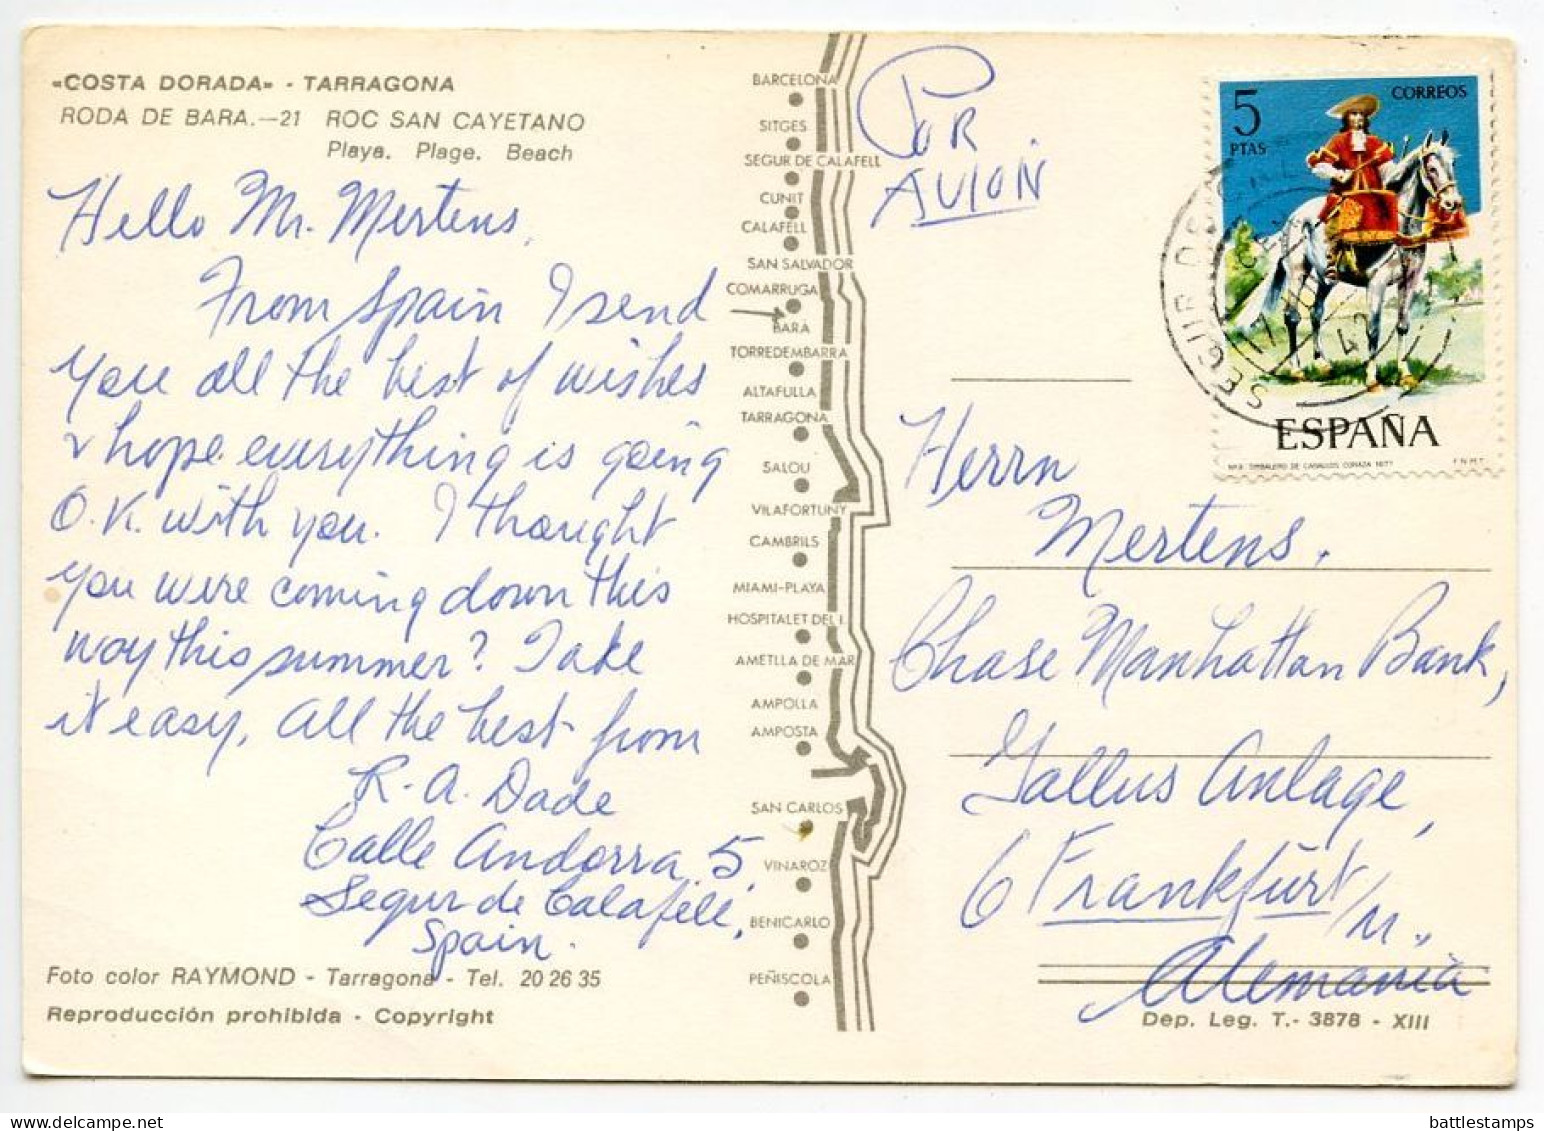 «COSTA DORADA» - TARRAGONA
RODA DE BARA.—21 ROC SAN CAYETANO
Playa. Plage. Beach
Hello Mr. Mertens,
From Spain I send
you all the best of wishes
& hope everything is going
O.K. with you. I thought
you were coming down this
way this summer? Take
it easy, all the best from
R. A. Dade
Calle Andorra, 5,
Segur de Calafell,
Spain.
Foto color RAYMOND - Tarragona - Tel. 20 26 35
Reproducción prohibida - Copyright
BARCELONA
SITGES
SEGUR DE CALAFELL
CUNIT
CALAFELL
SAN SALVADOR
COMARRUGA
BARÁ
TORREDEMBARRA
ALTAFULLA
TARRAGONA
SALOU
VILAFORTUNY
CAMBRILS
MIAMI-PLAYA
HOSPITALET DEL I.
AMETLLA DE MAR
AMPOLLA
AMPOSTA
SAN CARLOS
VINAROZ
BENICARLO
PEÑISCOLA
POR
AVION
5 CORREOS
PTAS
ESPAÑA
TIMBALERO DE CABALLOS CORAZA 1677 F.N.M.T.
SEGUR DE
Herrn
Mertens,
Chase Manhattan Bank,
Gallus Anlage,
6 Frankfurt/M.,
Alemania
Dep. Leg. T.- 3878 - XIII
battlestamps